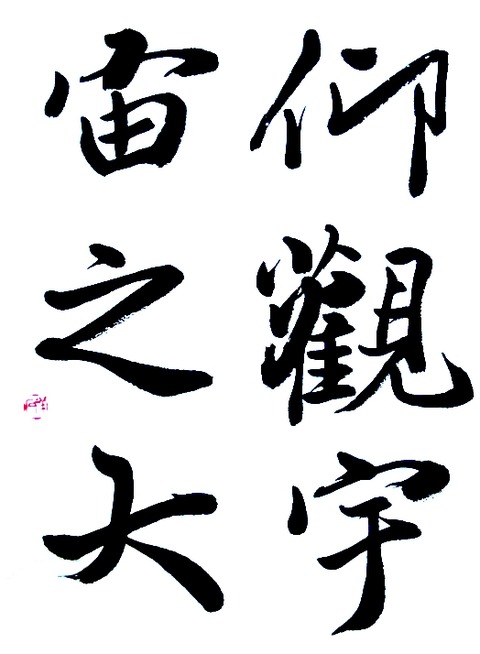 仰觀宇
宙之大